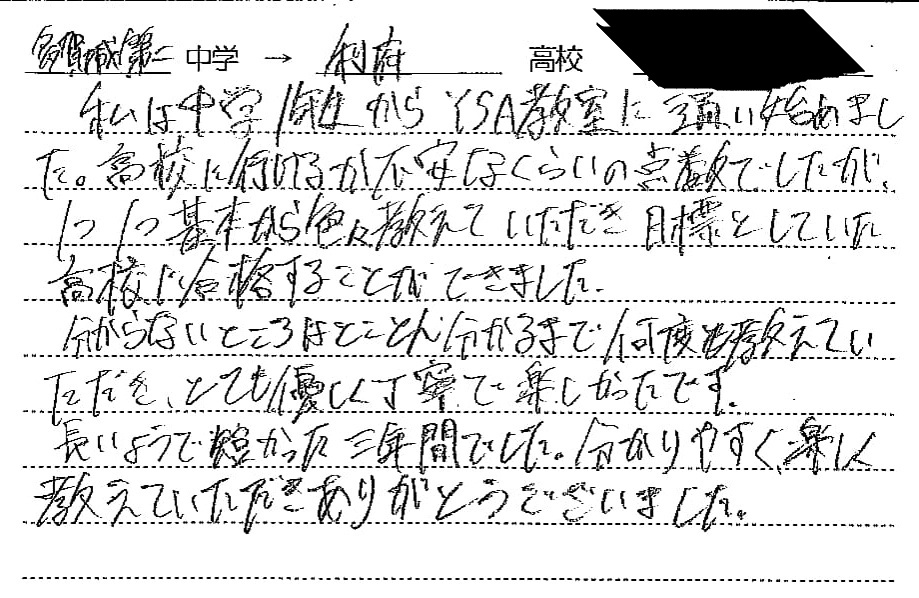 多賀城第二 中学 → 利府 高校
私は中学1年生からYSA教室に通い始めまし
た。高校に行けるか不安なくらいの点数でしたが、
1つ1つ基本から色々教えていただき目標としていた
高校に合格することができました。
分からないところはとことん分かるまで何度も教えてい
ただき、とても優しく丁寧で楽しかったです。
長いようで短かった三年間でした。分かりやすく、楽しく
教えていただきありがとうございました。